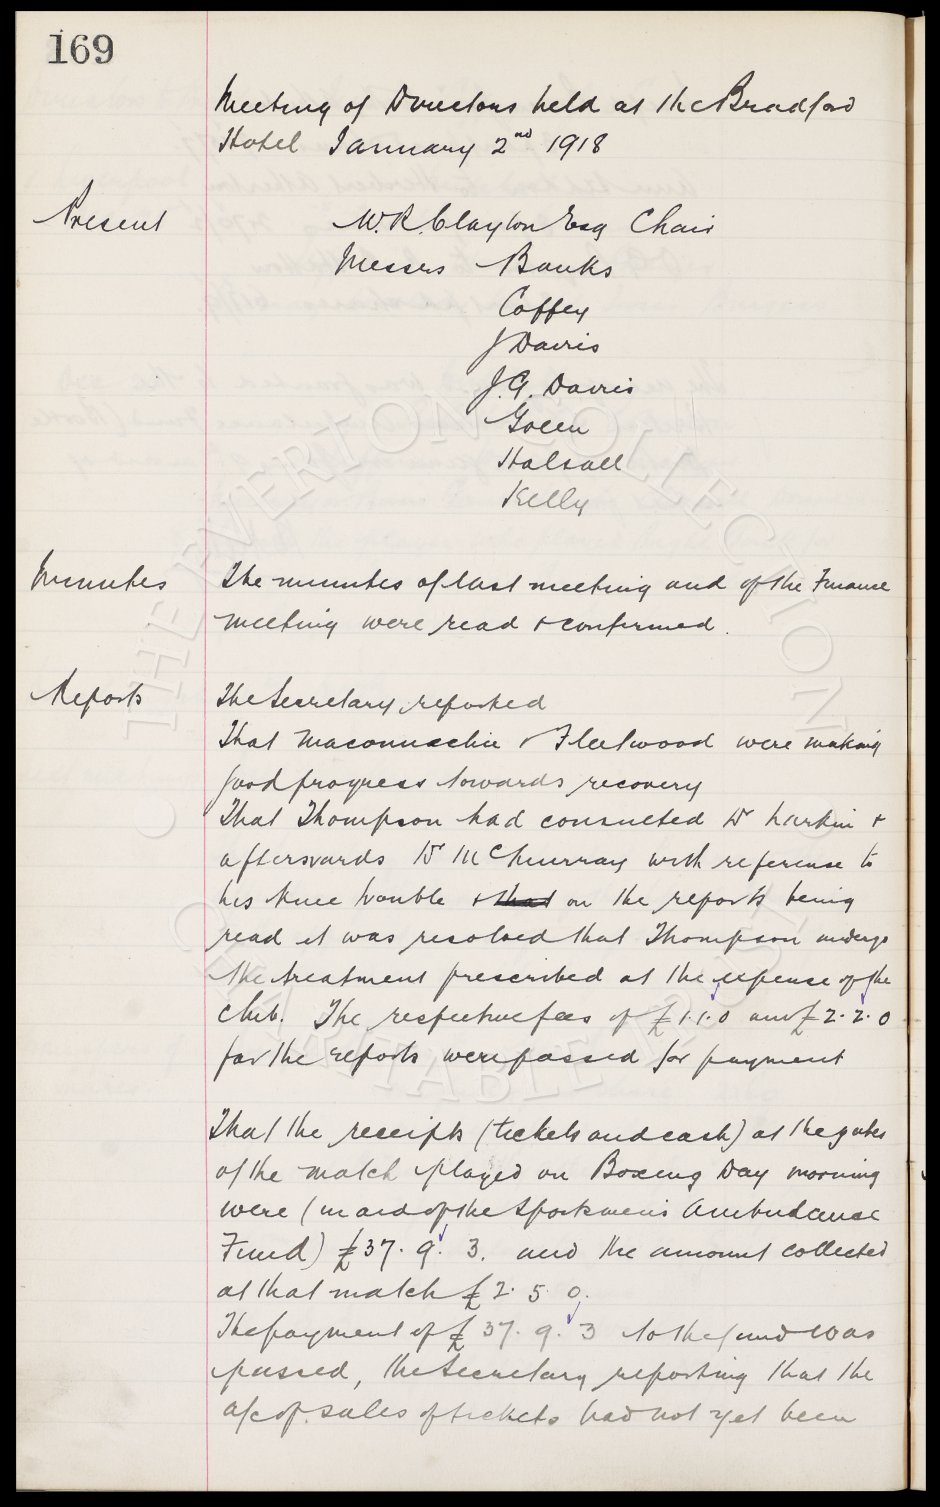 169
Meeting of Directors held at the Bradford
Hotel January 2nd 1918
Present W.R. Clayton Esq Chair
Messrs Banks
Coffey
J Davies
J.G. Davies
Green
Halsall
Kelly
Minutes The minutes of last meeting and of the Finance
meeting were read & confirmed.
Reports The Secretary reported
That Maconnachie & Fleetwood were making
good progress towards recovery
That Thompson had consulted Dr Larkin &
afterwards Dr McMurray with reference to
his knee trouble & that on the reports being
read it was resolved that Thompson undergo
the treatment prescribed at the expense of the
club. The respective fees of £1.1.0 and £2.2.0
for the reports were passed for payment
That the receipts (tickets and cash) at the gates
of the match played on Boxing Day morning
were (in aid of the Sportsmens Ambulance
Fund) £37.9.3. and the amount collected
at that match £2.5.0.
The payment of £37.9.3 to the fund was
passed, the Secretary reporting that the
a/c of sales of tickets had not yet been
© THE EVERTON COLLECTION
CHARITABLE TRUST